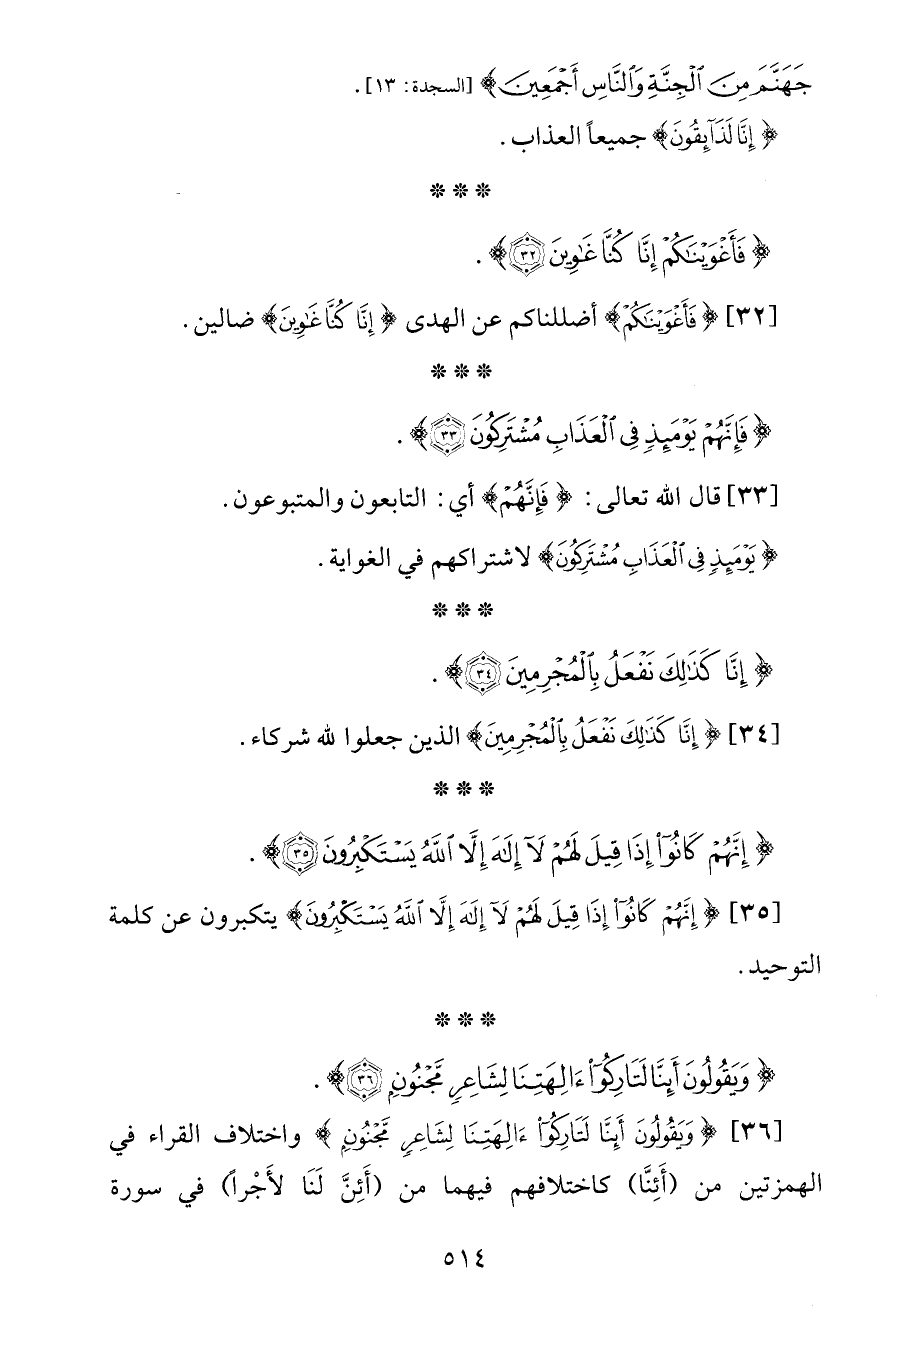 جَهَنَّمَ مِنَ ٱلْجِنَّةِ وَٱلنَّاسِ أَجْمَعِينَ﴾ [السجدة: ١٣].
﴿إِنَّا لَذَآئِقُونَ﴾ جميعاً العذاب.
* * *
﴿فَأَغْوَيْنَٰكُمْ إِنَّا كُنَّا غَٰوِينَ ٣٢﴾.
[٣٢] ﴿فَأَغْوَيْنَٰكُمْ﴾ أضللناكم عن الهدى ﴿إِنَّا كُنَّا غَٰوِينَ﴾ ضالين.
* * *
﴿فَإِنَّهُمْ يَوْمَئِذٍ فِى ٱلْعَذَابِ مُشْتَرِكُونَ ٣٣﴾.
[٣٣] قال الله تعالى: ﴿فَإِنَّهُمْ﴾ أي: التابعون والمتبوعون.
﴿يَوْمَئِذٍ فِى ٱلْعَذَابِ مُشْتَرِكُونَ﴾ لاشتراكهم في الغواية.
* * *
﴿إِنَّا كَذَٰلِكَ نَفْعَلُ بِٱلْمُجْرِمِينَ ٣٤﴾.
[٣٤] ﴿إِنَّا كَذَٰلِكَ نَفْعَلُ بِٱلْمُجْرِمِينَ﴾ الذين جعلوا لله شركاء.
* * *
﴿إِنَّهُمْ كَانُوٓا۟ إِذَا قِيلَ لَهُمْ لَآ إِلَٰهَ إِلَّا ٱللَّهُ يَسْتَكْبِرُونَ ٣٥﴾.
[٣٥] ﴿إِنَّهُمْ كَانُوٓا۟ إِذَا قِيلَ لَهُمْ لَآ إِلَٰهَ إِلَّا ٱللَّهُ يَسْتَكْبِرُونَ﴾ يتكبرون عن كلمة
التوحيد.
* * *
﴿وَيَقُولُونَ أَئِنَّا لَتَارِكُوٓا۟ ءَالِهَتِنَا لِشَاعِرٍ مَّجْنُونٍ ٣٦﴾.
[٣٦] ﴿وَيَقُولُونَ أَئِنَّا لَتَارِكُوٓا۟ ءَالِهَتِنَا لِشَاعِرٍ مَّجْنُونٍ﴾ واختلاف القراء في
الهمزتين من (أَئِنَّا) كاختلافهم فيهما من (أَئِنَّ لَنَا لأَجْراً) في سورة
٥١٤